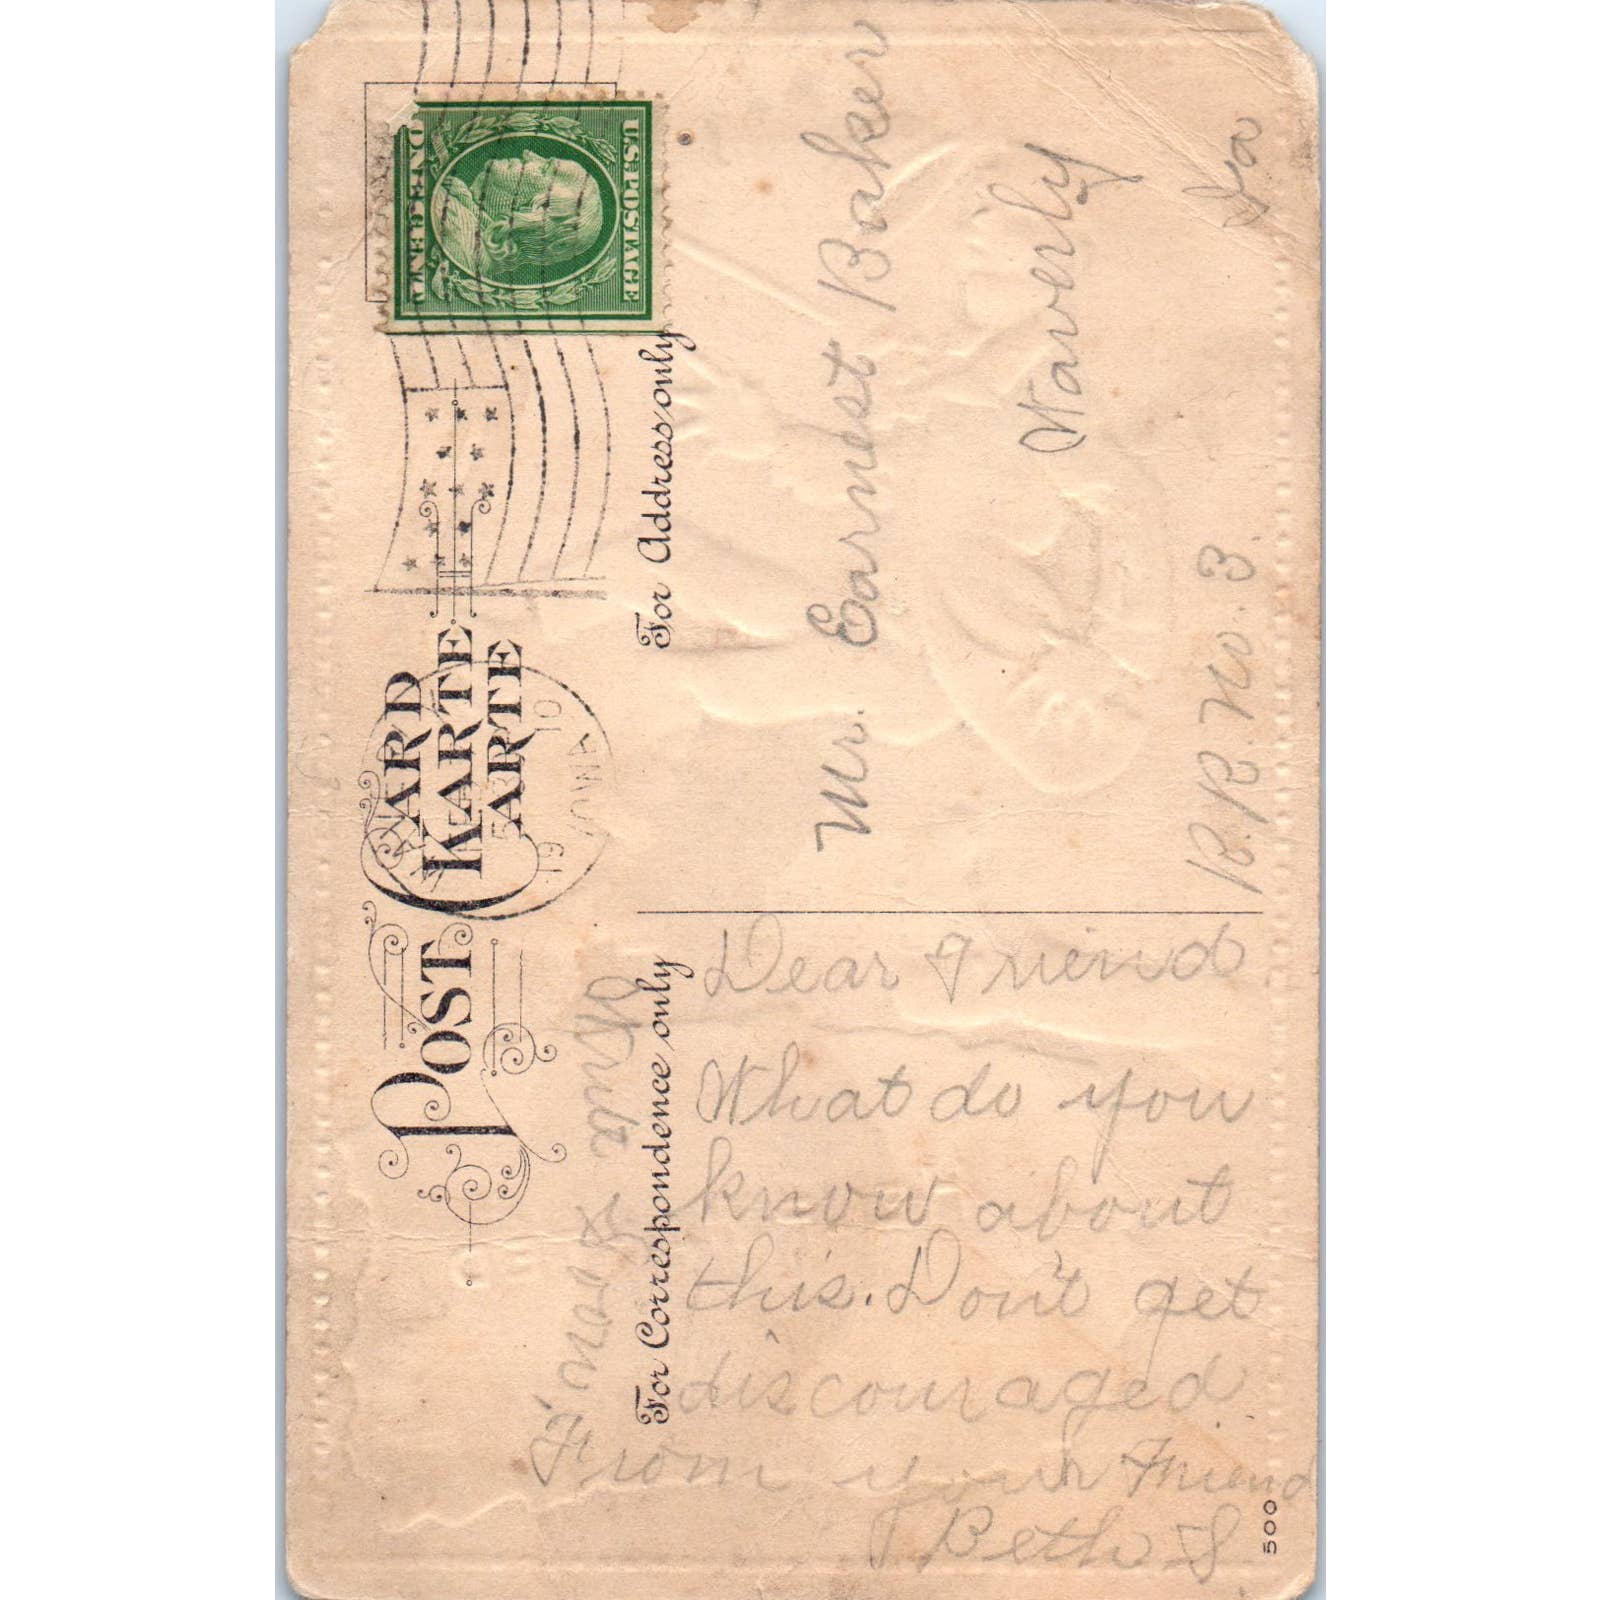 POST CARD
KARTE
CARTE
U.S. POSTAGE
ONE CENT
19 10
IOWA
For Correspondence only
For Address only
Dear Friend
What do you
know about
this. Don't get
discouraged
From your Friend
Beth S.
Mr. Earnest Baker
Waverly
R.R. No. 3. Ia
500